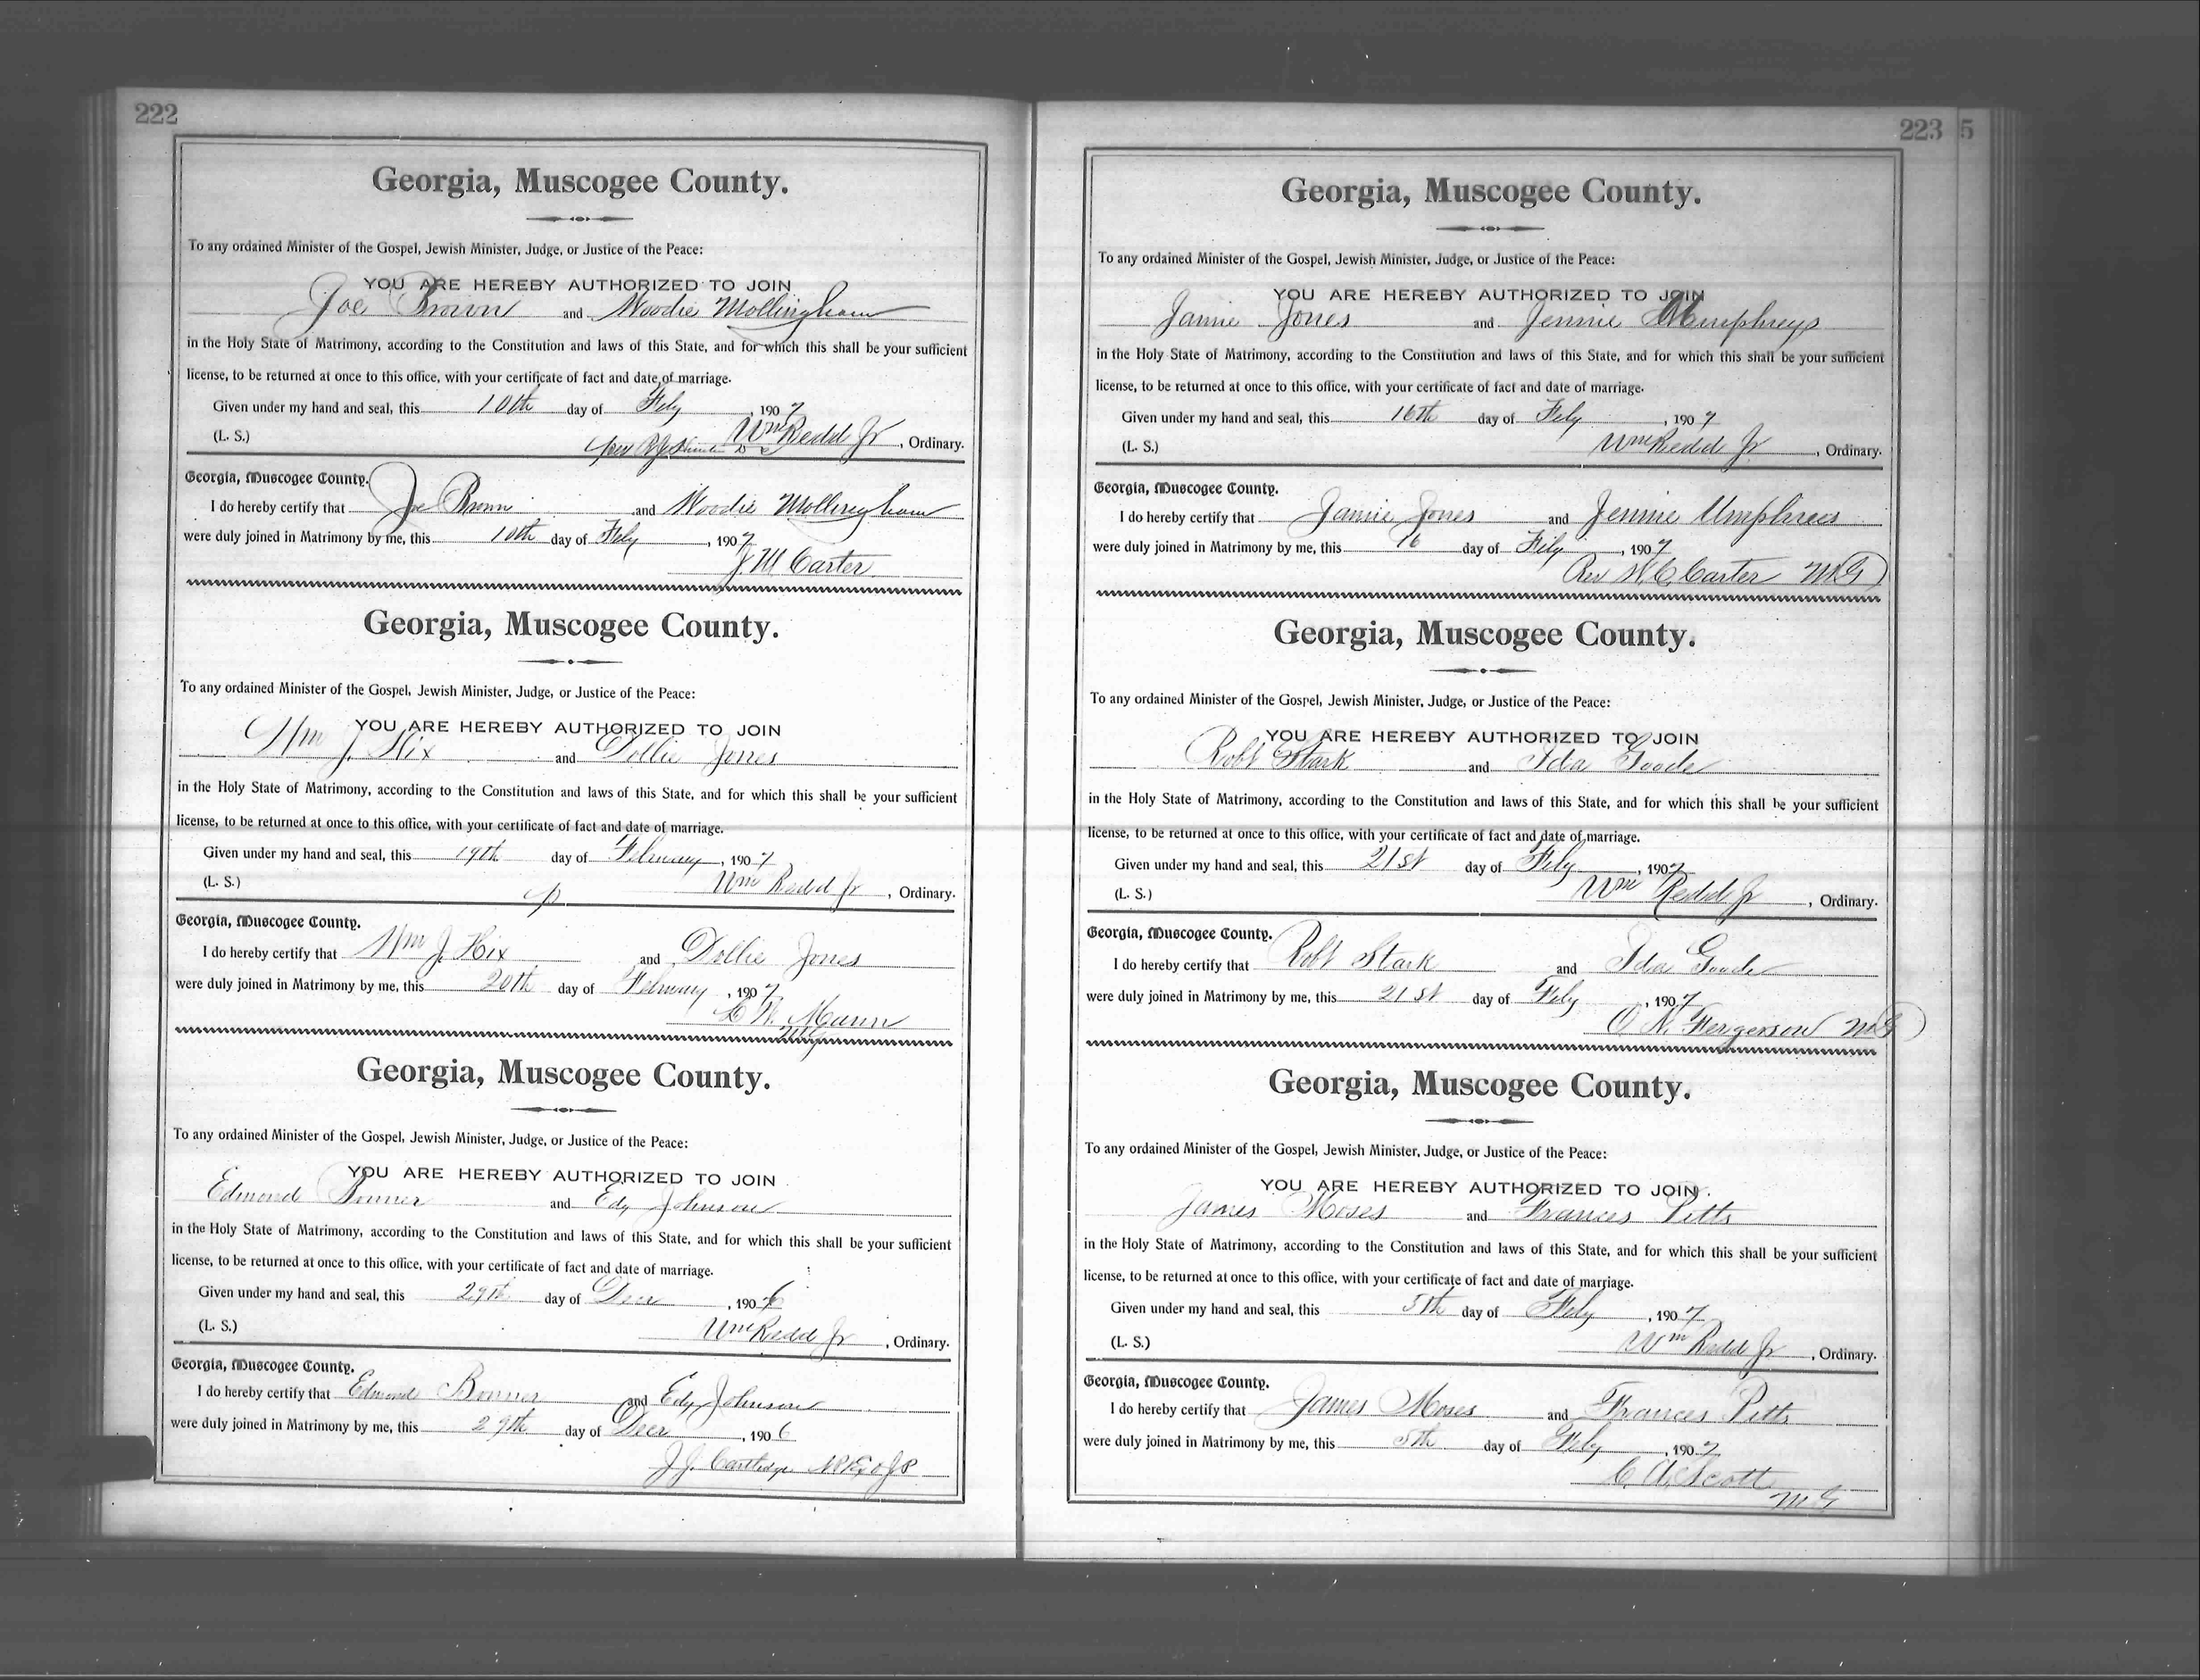 222
Georgia, Muscogee County.
To any ordained Minister of the Gospel, Jewish Minister, Judge, or Justice of the Peace:
YOU ARE HEREBY AUTHORIZED TO JOIN
Joe Brown and Woodie Mollingham
in the Holy State of Matrimony, according to the Constitution and laws of this State, and for which this shall be your sufficient
license, to be returned at once to this office, with your certificate of fact and date of marriage.
Given under my hand and seal, this 10th day of Feby, 1907
(L. S.) Wm Redd Jr, Ordinary.
Georgia, Muscogee County.
I do hereby certify that Joe Brown and Woodie Mollingham
were duly joined in Matrimony by me, this 10th day of Feby, 1907
J. M Carter
Georgia, Muscogee County.
To any ordained Minister of the Gospel, Jewish Minister, Judge, or Justice of the Peace:
YOU ARE HEREBY AUTHORIZED TO JOIN
Wm J. Hix and Dollie Jones
in the Holy State of Matrimony, according to the Constitution and laws of this State, and for which this shall be your sufficient
license, to be returned at once to this office, with your certificate of fact and date of marriage.
Given under my hand and seal, this 19th day of February, 1907
(L. S.) Wm Redd Jr, Ordinary.
Georgia, Muscogee County.
I do hereby certify that Wm J. Hix and Dollie Jones
were duly joined in Matrimony by me, this 20th day of February, 1907
W. Mann
MG
Georgia, Muscogee County.
To any ordained Minister of the Gospel, Jewish Minister, Judge, or Justice of the Peace:
YOU ARE HEREBY AUTHORIZED TO JOIN
Edmond Bonner and Edy Johnson
in the Holy State of Matrimony, according to the Constitution and laws of this State, and for which this shall be your sufficient
license, to be returned at once to this office, with your certificate of fact and date of marriage.
Given under my hand and seal, this 29th day of Decr, 1906
(L. S.) Wm Redd Jr, Ordinary.
Georgia, Muscogee County.
I do hereby certify that Edmond Bonner and Edy Johnson
were duly joined in Matrimony by me, this 29th day of Decr, 1906
J. J. Cartledge NP & Ex O JP
223 5
Georgia, Muscogee County.
To any ordained Minister of the Gospel, Jewish Minister, Judge, or Justice of the Peace:
YOU ARE HEREBY AUTHORIZED TO JOIN
Jamie Jones and Jennie Umphreys
in the Holy State of Matrimony, according to the Constitution and laws of this State, and for which this shall be your sufficient
license, to be returned at once to this office, with your certificate of fact and date of marriage.
Given under my hand and seal, this 16th day of Feby, 1907
(L. S.) Wm Redd Jr, Ordinary.
Georgia, Muscogee County.
I do hereby certify that Jamie Jones and Jennie Umphrees
were duly joined in Matrimony by me, this 16 day of Feby, 1907
Rev H. C. Carter MG
Georgia, Muscogee County.
To any ordained Minister of the Gospel, Jewish Minister, Judge, or Justice of the Peace:
YOU ARE HEREBY AUTHORIZED TO JOIN
Robt Stark and Ida Goode
in the Holy State of Matrimony, according to the Constitution and laws of this State, and for which this shall be your sufficient
license, to be returned at once to this office, with your certificate of fact and date of marriage.
Given under my hand and seal, this 21st day of Feby, 1907
(L. S.) Wm Redd Jr, Ordinary.
Georgia, Muscogee County.
I do hereby certify that Robt Stark and Ida Goode
were duly joined in Matrimony by me, this 21st day of Feby, 1907
O. N. Fergerson MG
Georgia, Muscogee County.
To any ordained Minister of the Gospel, Jewish Minister, Judge, or Justice of the Peace:
YOU ARE HEREBY AUTHORIZED TO JOIN
James Moses and Frances Pitts
in the Holy State of Matrimony, according to the Constitution and laws of this State, and for which this shall be your sufficient
license, to be returned at once to this office, with your certificate of fact and date of marriage.
Given under my hand and seal, this 5th day of Feby, 1907
(L. S.) Wm Redd Jr, Ordinary.
Georgia, Muscogee County.
I do hereby certify that James Moses and Frances Pitts
were duly joined in Matrimony by me, this 5th day of Feby, 1907
C. A. Scott
M G